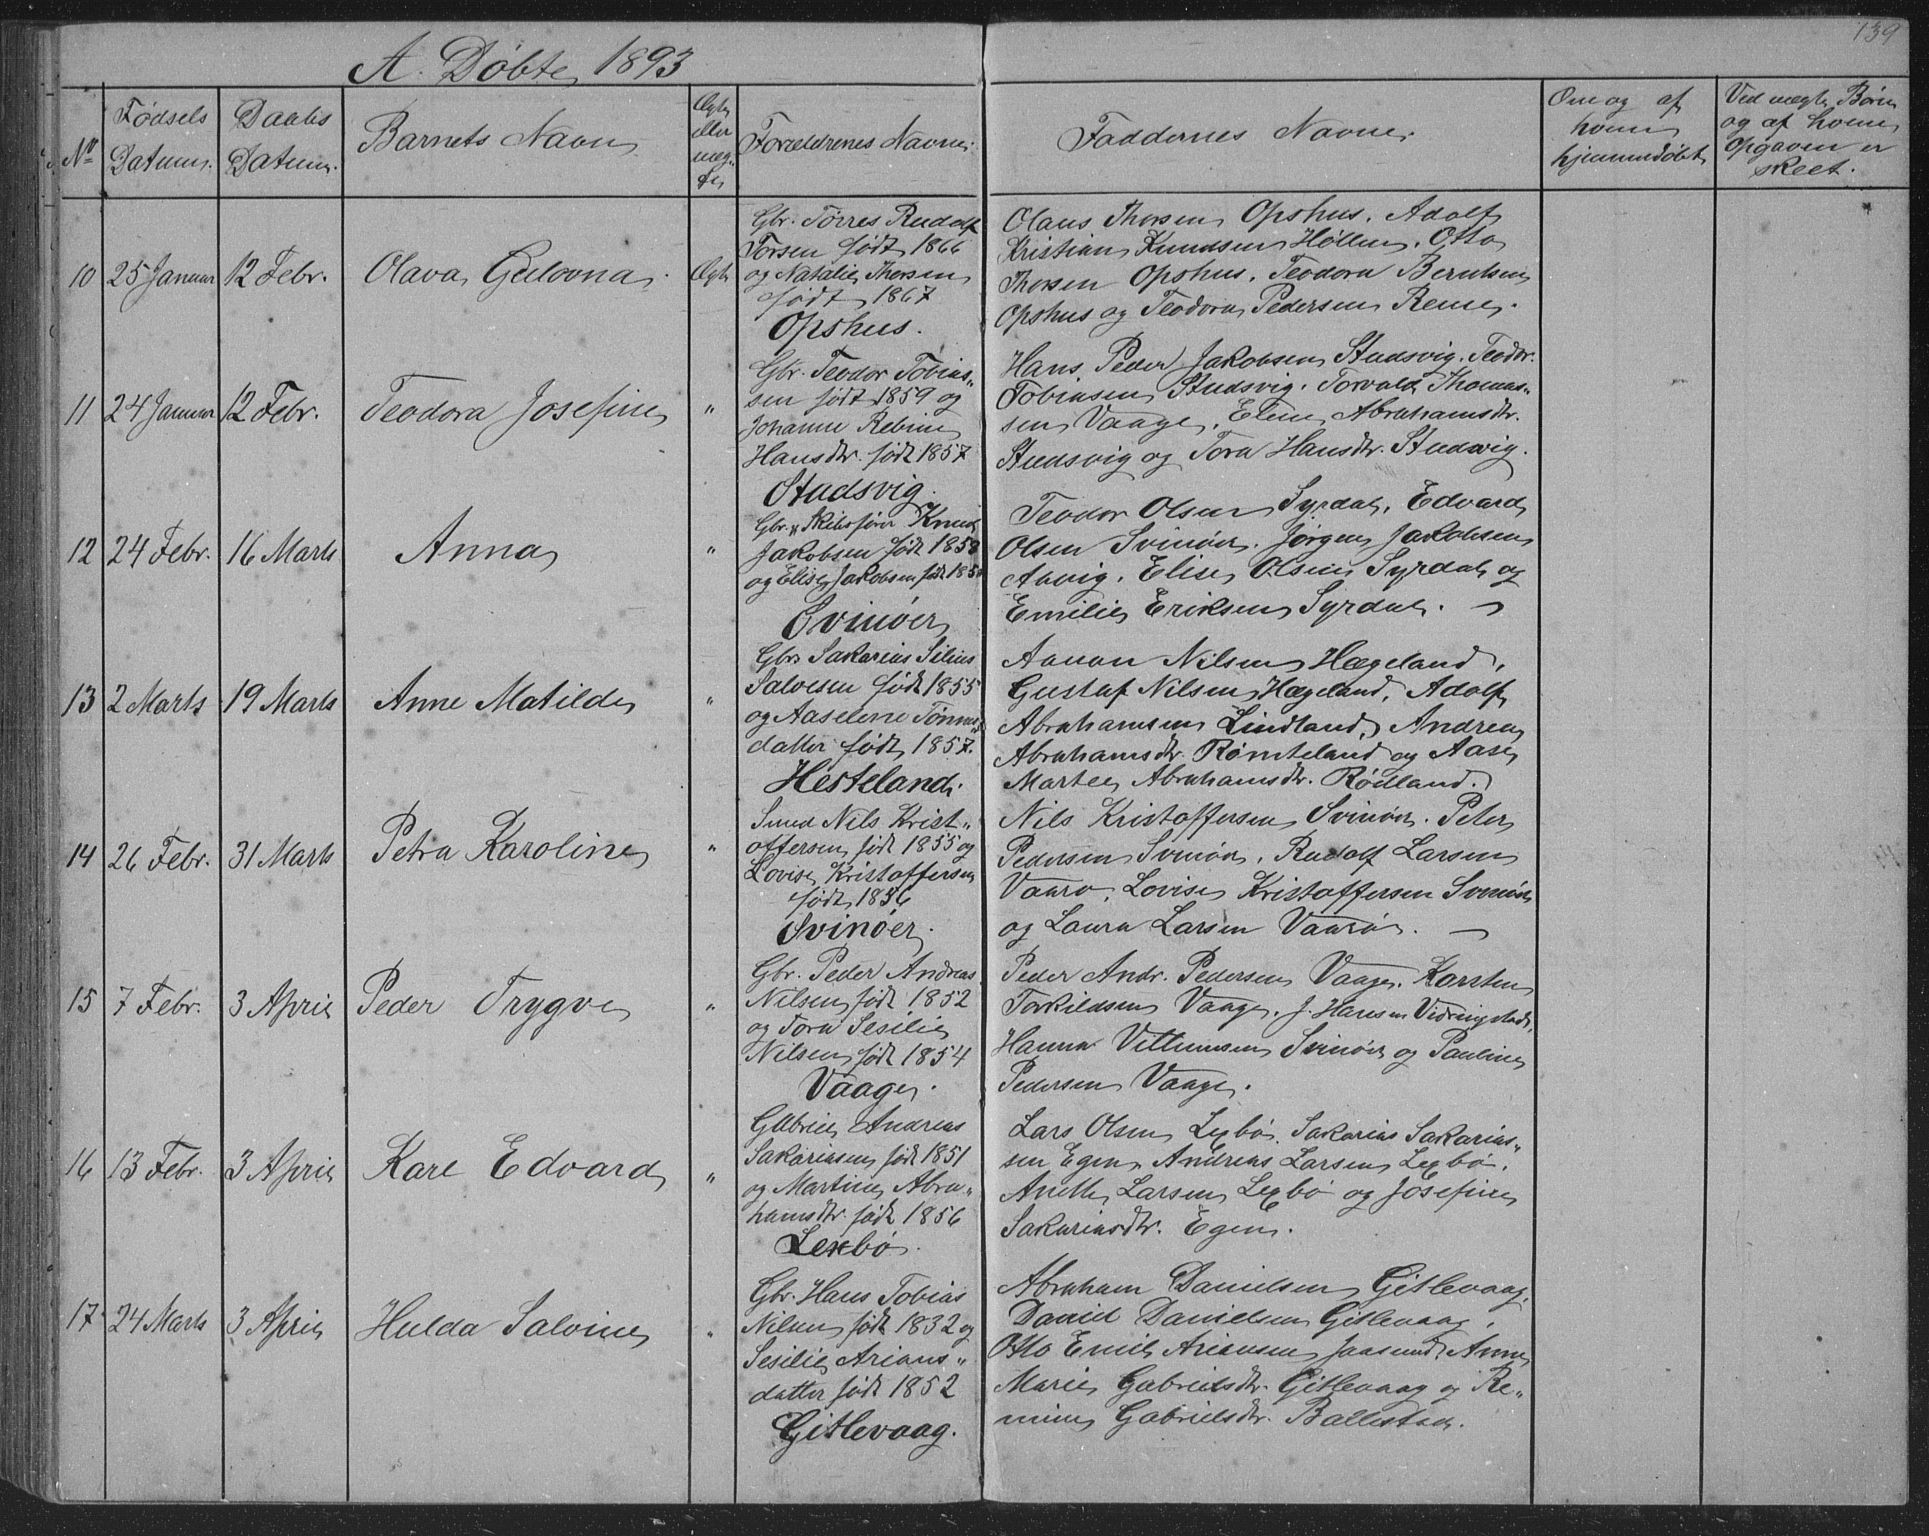 139
A. Døbte 1893
No
Fødsels Datum.
Daabs Datum.
Barnets Navn
Ægte eller uægte
Forældrenes Navne.
Faddernes Navne.
Om og af hvem hjemmedøbt
Ved uægte Børn og af hvem Opgaven er skeet.
10 25 Januar 12 Febr. Olava Gulovna. Ægte
Gbr. Tørres Rudolf
Torsen født 1866
og Natalie Thorsen
født 1867
Opshus.
Olaus Thorsen Opshus. Adolf
Kristian Knudsen Høllen. Otto
Thorsen Opshus. Teodora Berntsen
Opshus og Teodora Pedersen Reme.
11 24 Januar 12 Febr. Teodora Josefine "
Gbr. Teodor Tobias"
sen født 1859 og
Johanne Rebine
Hansdtr. født 1857
Studsvig.
Hans Peder Jakobsen Studsvig. Teodor
Tobiasen Studsvig. Torvald Thomas"
sen Vaage. Elene Abrahamsdtr.
Studsvig og Tora Hansdtr. Studsvig.
12 24 Febr. 16 Marts Anna "
Gbr. Skibsfører Knud
Jakobsen født 1858
og Elise Jakobsen født
Svinøer
Teodor Olsen Syrdal. Edvard
Olsen Svinøer. Jørgen Jakobsen
Elise Olsen Syrdal og
Emilie Eriksen Syrdal.
13 2 Marts 19 Marts Anne Matilde "
Gbr. Sakarias Silius
Salvesen født 1855
og Aaselene Tønnes"
datter født 1857.
Hesteland.
Aanon Nilsen Hægeland.
Gustaf Nilsen Hægeland. Adolf
Abrahamsen Lindland. Andrea
Abrahamsdtr. Rømteland og Aase
Martea Abrahamsdtr. Rødland.
14 26 Febr. 31 Marts Petra Karoline "
Smed Nils Krist"
offersen født 1855 og
Lovise Kristoffersen
født 1856
Svinøer.
Nils Kristoffersen Svinøer. Peter
Pedersen Svinøer. Rudolf Larsen
Vaarø. Lovise Kristoffersen Svinøer
og Laura Larsen Vaarø.
15 7 Febr. 3 April Peder Trygve "
Gbr. Peder Andreas
Nilsen født 1852
og Tora Sesilie
Nilsen født 1854
Vaage.
Peder Andr. Pedersen Vaage. Karsten
Torkildsen Vaage. J. Hansen Vidringstad.
Hanna Villumsen Svinøer og Pauline
Pedersen Vaage.
16 13 Febr. 3 April Karl Edvard "
Gabriel Andreas
Sakariasen født 1851
og Martine Abra"
hamsdtr. født 1856
Lexbø.
Lars Olsen Lexbø. Sakarias Sakarias"
sen Egen. Andreas Larsen Lexbø.
Anette Larsen Lexbø og Josefine
Sakariasdtr. Egen.
17 24 Marts 3 April Hulda Salvine "
Gbr. Hans Tobias
Nilsen født 1832 og
Sesilie Arians"
datter født 1852
Gitlevaag.
Abraham Danielsen Gitlevaag.
Daniel Danielsen Gitlevaag.
Otto Emil Ariansen Jaasund. Anne
Marie Gabrielsdtr. Gitlevaag og Re"
mine Gabrielsdtr. Ballestad.